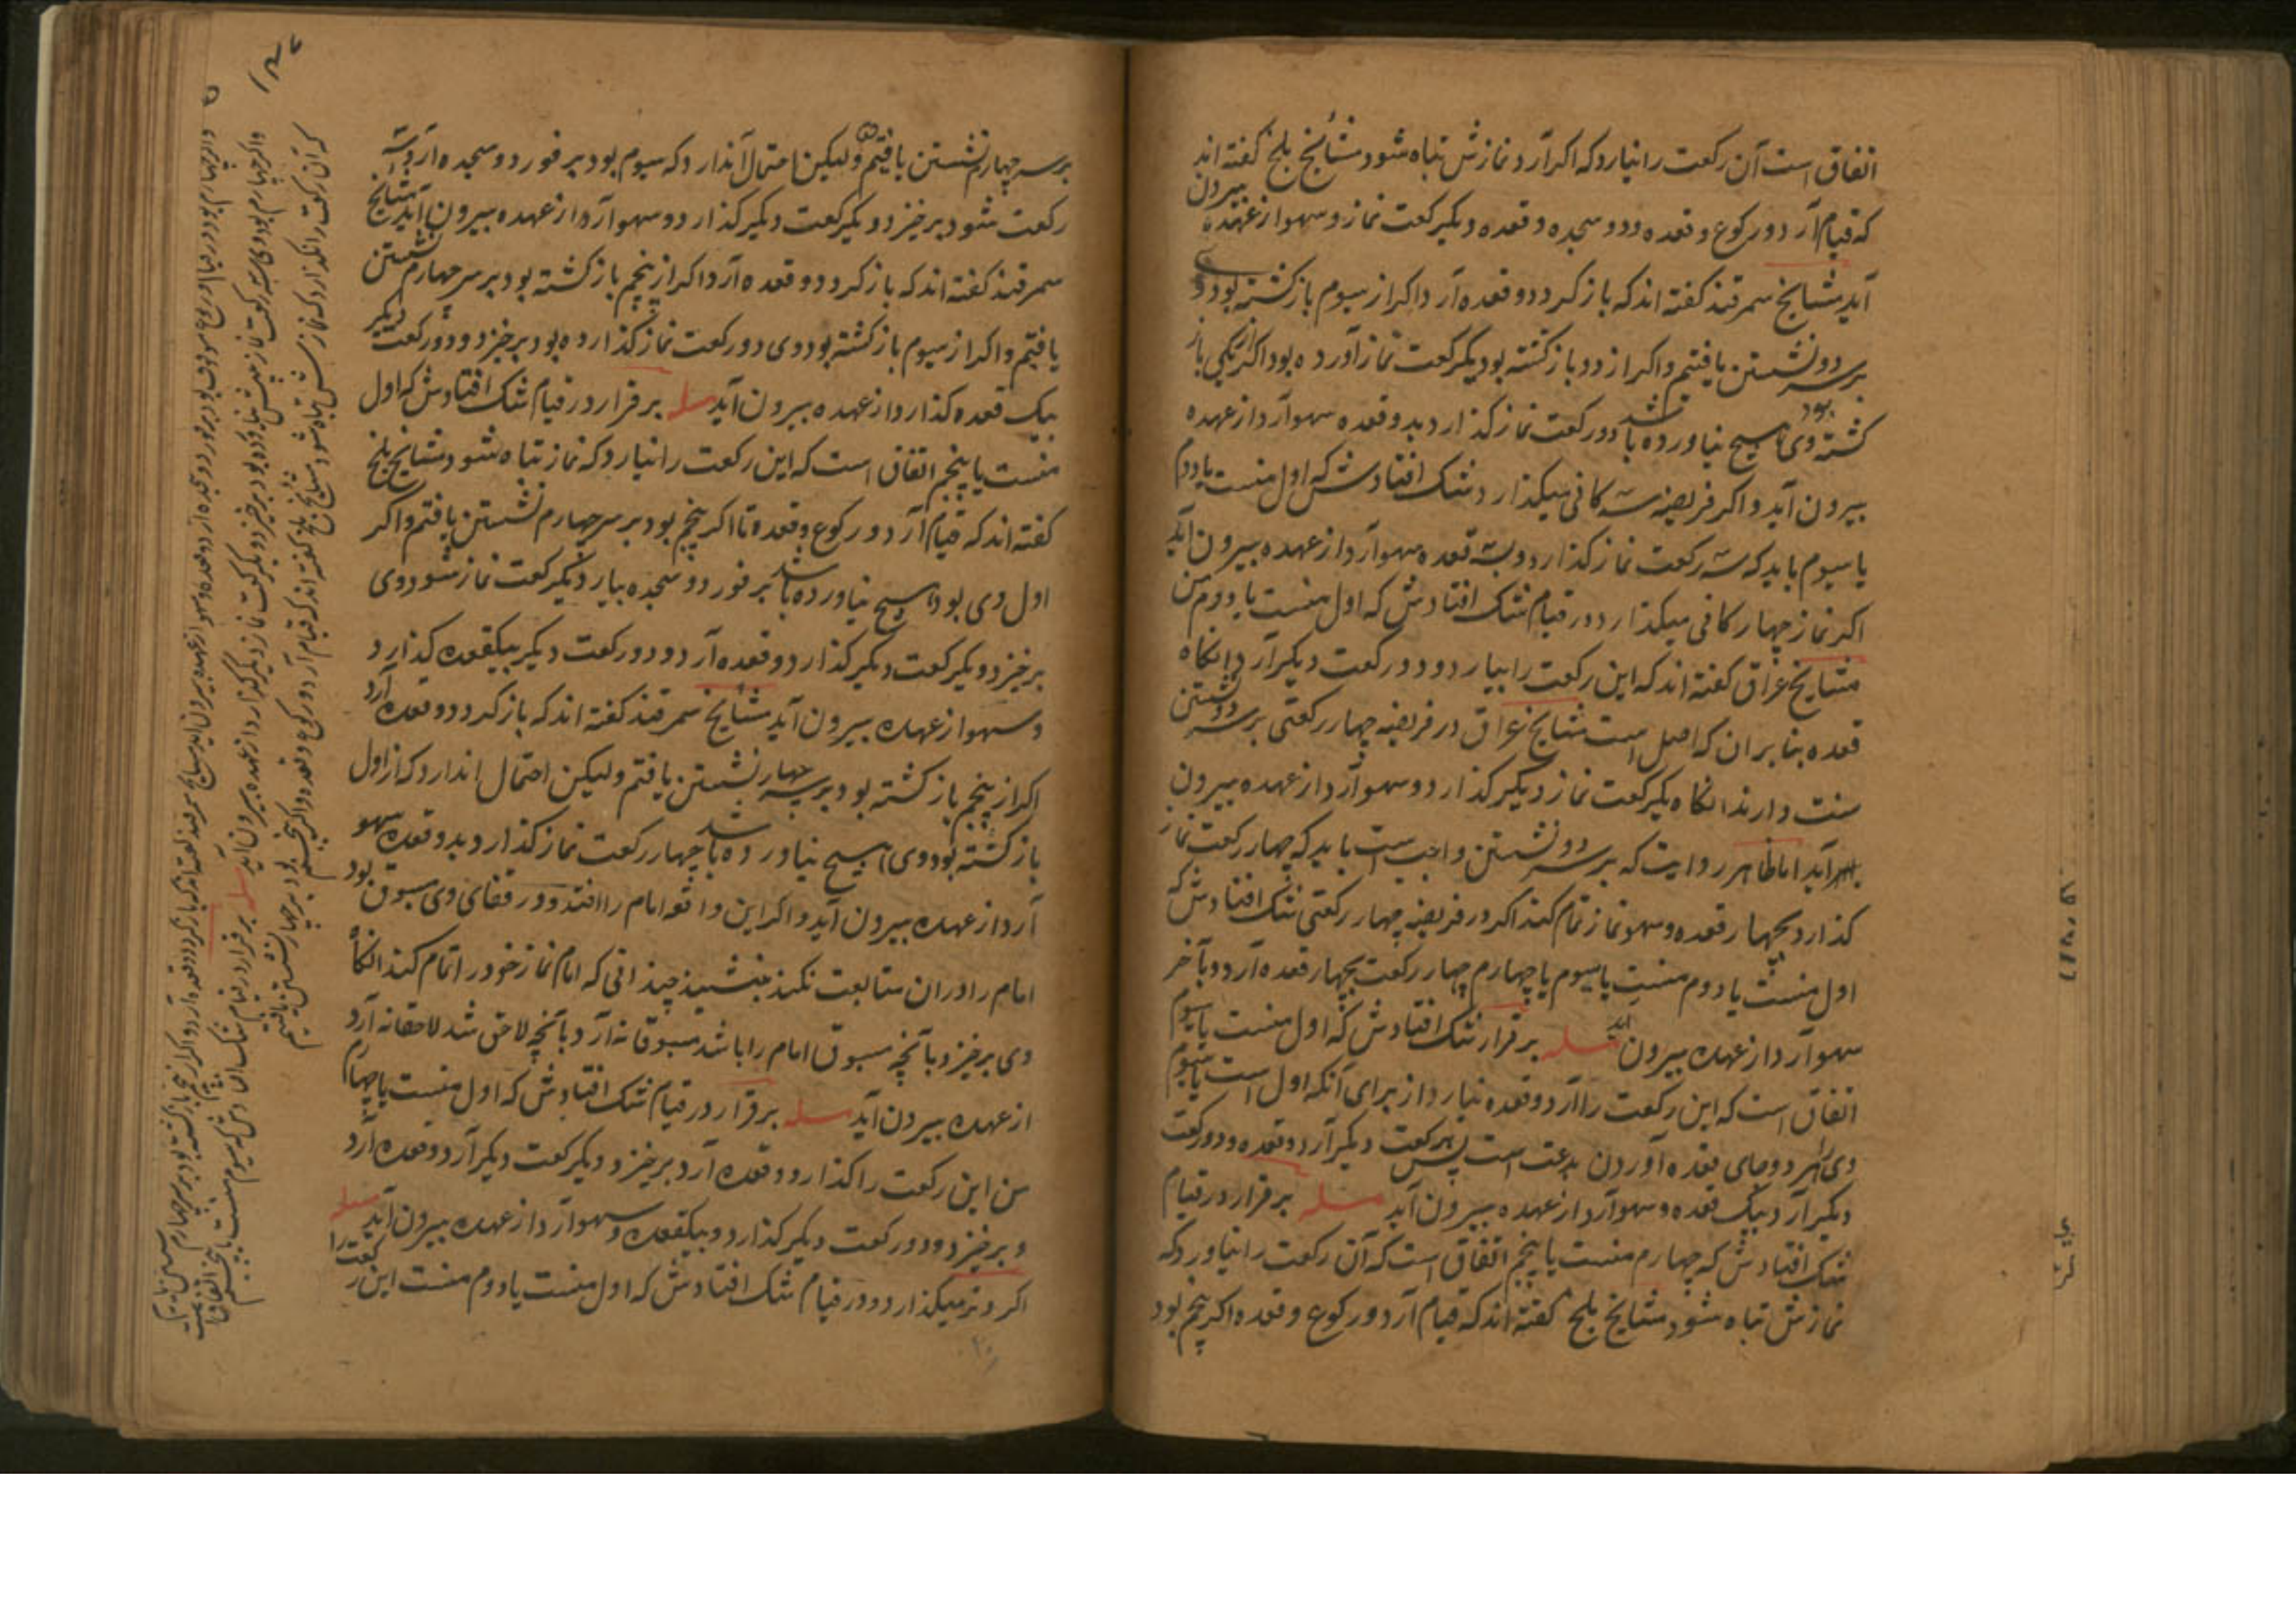 اتفاق است آن رکعت را نیارد که اکر آرد نمازش تباه شود مشائخ بلخ کفته اند
که قیام آرد و رکوع و قعده و دو سجده و قعده و یکرکعت نماز و سهو از عهده بیرون
آید مشایخ سمرقند کفته اند که باز کردد و قعده آرد اکر از سیوم باز کشته بود و
بر سر دو نشستن یافتیم و اکر از دو باز کشته بود یکرکعت نماز آورده بود اکر از یکی باز
کشته بود وی هیچ نیاورده باشد دو رکعت نماز کذارد بدو قعده سهو آرد از عهده
بیرون آید و اکر فریضه سه کانی میکذارد شک افتادش که اول منست یا دوم
یا سیوم باید که سه رکعت نماز کذارد و بسه قعده سهو آرد از عهده بیرون آید
اکر نماز چهار کانی میکذارد در قیام شک افتادش که اول منست یا دوم من
مشایخ عراق کفته اند که این رکعت را بیارد و دو رکعت دیکر آرد و آنکاه
قعده بنا بران که اصل است مشایخ عراق در فریضه چهار رکعتی بر سر دو نشستن
سنت دارند انکاه یکرکعت نماز دیکر کذارد و سهو آرد از عهده بیرون
آید اما ظاهر روایت که بر سر دو نشستن واجب است باید که چهار رکعت نماز
کذارد بچهار قعده و سهو نماز تمام کند اکر در فریضه چهار رکعتی شک افتادش که
اول منست یا دوم منست یا سیوم یا چهارم چهار رکعت بچهار قعده آرد و بآخر
سهو آرد از عهده بیرون آید مسله برقرار شک افتادش که اول منست یا سیوم
اتفاق است که این رکعت را آرد و قعده نیارد از برای آنکه اول است یا سیوم
وی را هر دو جای قعده آوردن بدعت است پس یکرکعت دیکر آرد و قعده و دو رکعت
دیکر آرد بیک قعده و سهو آرد از عهده بیرون آید مسله برقرار در قیام
شک افتادش که چهارم منست یا پنجم اتفاق است که آن رکعت را نیاورد که
نمازش تباه شود مشایخ بلخ کفته اند که قیام آرد و رکوع و قعده اکر پنجم بود
بر سر چهارم نشستن یافتیم ولیکن احتمال آن دارد که سیوم بود بر فور دو سجده آرد سه
رکعت شود برخیزد و یکرکعت دیکر کذارد و سهو آرد از عهده بیرون آید مشایخ
سمرقند کفته اند که باز کردد و قعده آرد اکر از پنجم باز کشته بود بر سر چهارم نشستن
یافتیم و اکر از سیوم باز کشته بود وی دو رکعت نماز کذارده بود برخیزد و دو رکعت دیکر
بیک قعده کذارد از عهده بیرون آید مسله برقرار در قیام شک افتادش که اول
منست یا پنجم اتفاق است که این رکعت را نیارد که نماز تباه شود مشایخ بلخ
کفته اند که قیام آرد و رکوع و قعده تا اکر پنجم بود بر سر چهارم نشستن یافتیم و اکر
اول وی بود هیچ نیاورده باشد بر فور دو سجده بیارد یکرکعت نماز شود وی
برخیزد و یکرکعت دیکر کذارد و قعده آرد و دو رکعت دیکر بیکقعده کذارد
و سهو از عهده بیرون آید مشائخ سمرقند کفته اند که باز کردد و قعده آرد
اکر از پنجم باز کشته بود بر سر چهار نشستن یافتیم ولیکن احتمال ان دارد که از اول
باز کشته بود وی هیچ نیاورده باشد چهار رکعت نماز کذارد بدو قعده سهو
آرد از عهده بیرون آید و اکر این واقعه امام را افتد و در قفای وی مسبوق بود
امام را در ان متابعت نکند بنشیند چندانی که امام نماز خود را تمام کند انکاه
وی برخیزد و بآنچه مسبوق امام را باشد مسبوقانه آرد و بآنچه لاحق شد لاحقانه آرد
از عهده بیرون آید مسله برقرار در قیام شک افتادش که اول منست یا چهارم
من این رکعت را کذارد و قعده آرد برخیزد و یکرکعت دیکر آرد و قعده آرد
و برخیزد و دو رکعت دیکر کذارد و بیکقعده و سهو آرد از عهده بیرون آید مسله
اکر وتر میکذارد و در قیام شک افتادش که اول منست یا دوم منست این رکعت را
که آن رکعت را نکذارد که نمازش تباه شود مشایخ بلخ کفته اند که قیام آرد و رکوع و قعده و اکر پنجم بود بر سر چهار نشستن یافتیم